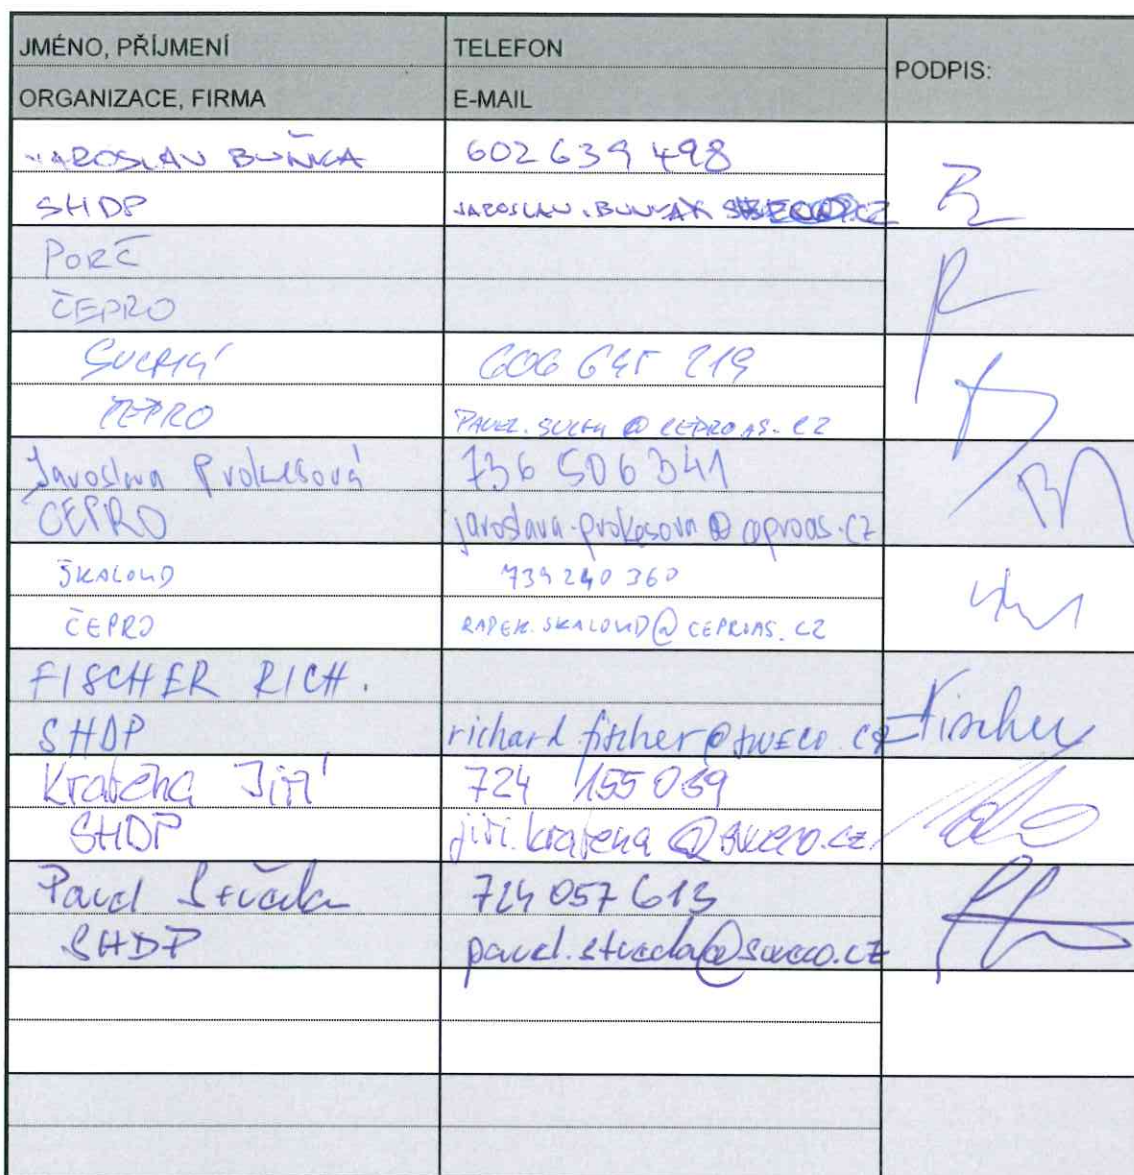 JMÉNO, PŘÍJMENÍ TELEFON
PODPIS:
ORGANIZACE, FIRMA E-MAIL
JAROSLAV BUŇKA 602 639 498
SHDP
PORČ
ČEPRO
SUCHÝ 606 645 219
ČEPRO PAVEL.SUCHY@CEPROAS.CZ
Jaroslava Prokesová 736 506 341
ČEPRO jaroslava.prokesova@ceproas.cz
ŠKALOUD 739 240 360
ČEPRO RADEK.SKALOUD@CEPROAS.CZ
FISCHER RICH.
SHDP richard.fischer@sweco.cz Fischer
Kratěna Jiří 724 155 039
SHDP jiri.kratena@sweco.cz
Pavel 724 057 613
SHDP